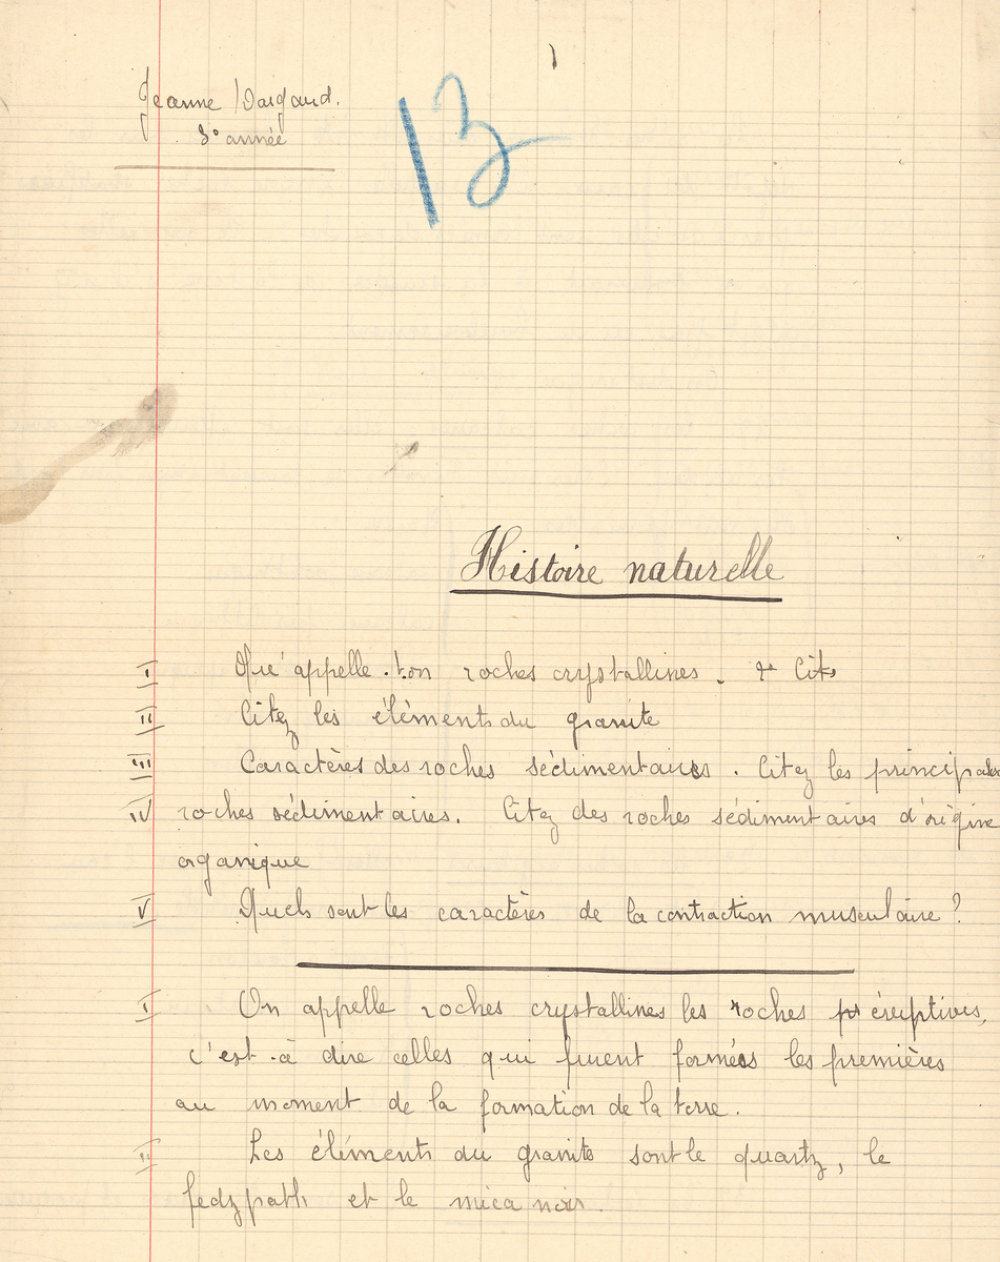 Jeanne Dargaud.
3° année
13
Histoire naturelle
I Qu'appelle-t-on roches crystallines. Cit
II Citez les éléments du granite
III Caractères des roches sédimentaires. Citez les principales
IV roches sédimentaires. Citez des roches sédimentaires d'origine
organique
V Quels sont les caractères de la contraction musculaire ?
I On appelle roches crystallines les roches éruptives,
c'est-à dire celles qui furent formées les premières
au moment de la formation de la terre.
II Les éléments du granite sont le quartz, le
fedzpath et le mica noir.